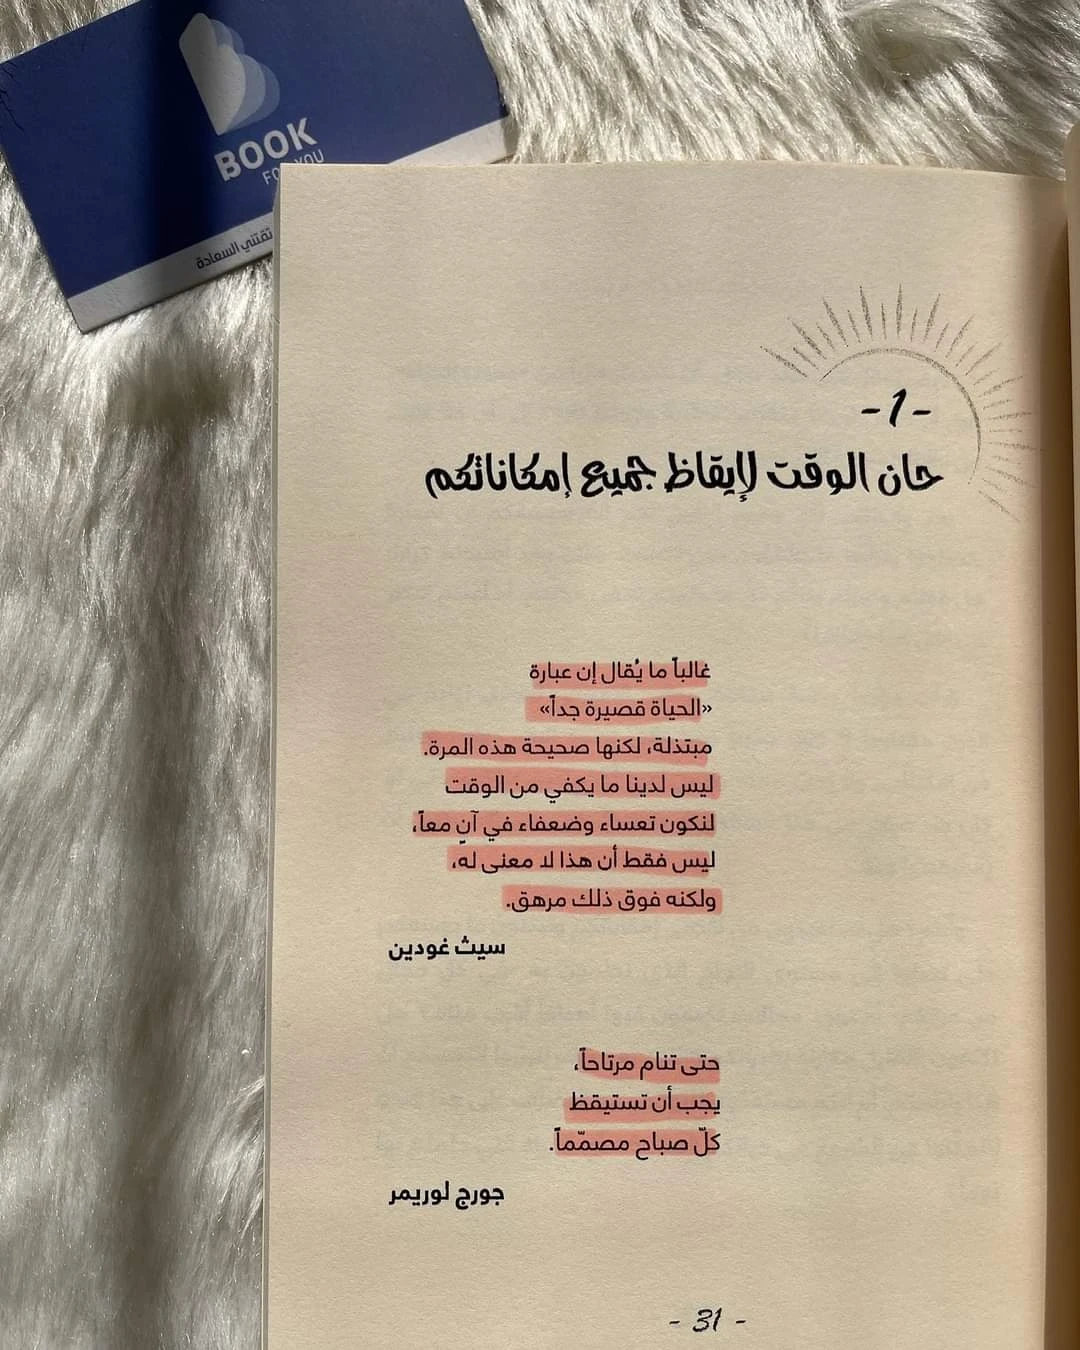 BOOK
FOR YOU
تقتني السعادة
-1-
حان الوقت لإيقاظ جميع إمكاناتكم
غالباً ما يُقال إن عبارة
«الحياة قصيرة جداً»
مبتذلة، لكنها صحيحة هذه المرة.
ليس لدينا ما يكفي من الوقت
لنكون تعساء وضعفاء في آنٍ معاً،
ليس فقط أن هذا لا معنى له،
ولكنه فوق ذلك مرهق.
سيث غودين
حتى تنام مرتاحاً،
يجب أن تستيقظ
كلّ صباح مصمّماً.
جورج لوريمر
- 31 -